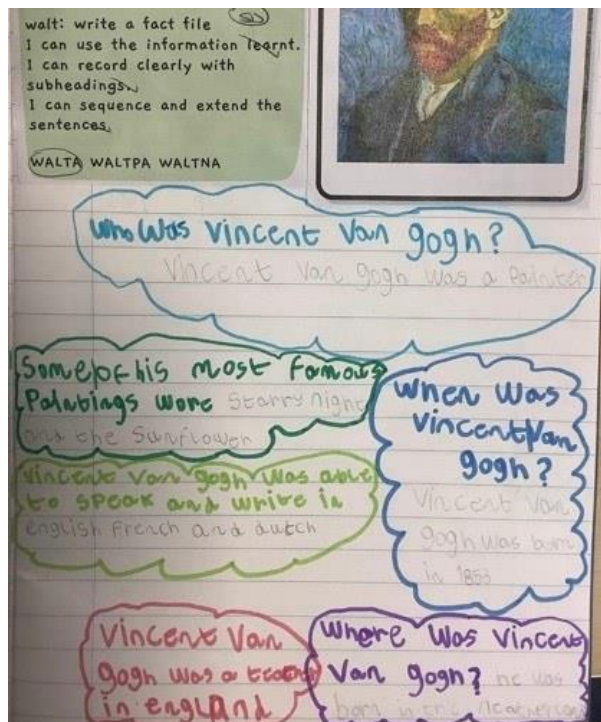 walt: write a fact file
I can use the information learnt.
I can record clearly with
subheadings.
I can sequence and extend the
sentences.
WALTA WALTPA WALTNA
Who Was Vincent Van gogh?
Vincent Van gogh was a Painter
Some of his most famous
Paintings wore Starry night
and the Sunflower
Vincent Van gogh Was able
to speak and write in
english French and dutch
When Was
Vincent Van
gogh?
Vincent Van
gogh was born
in 1853
Vincent Van
gogh was a teacher
in england
Where Was Vincent
Van gogh? he was
born in the